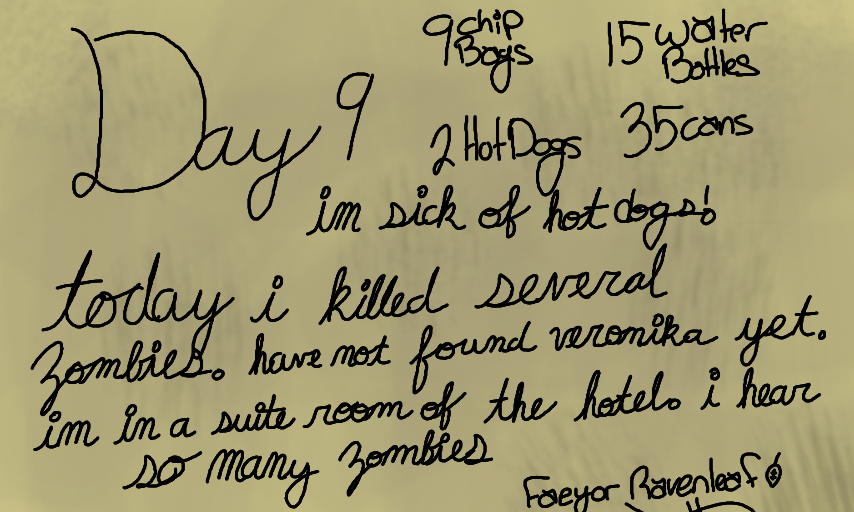 Day 9
9 chip Bags
15 water Bottles
2 Hot Dogs
35 cans
im sick of hot dogs!
today i killed several
zombies. have not found veronika yet.
im in a suite room of the hotel. i hear
so many zombies
Faeyar Ravenleaf